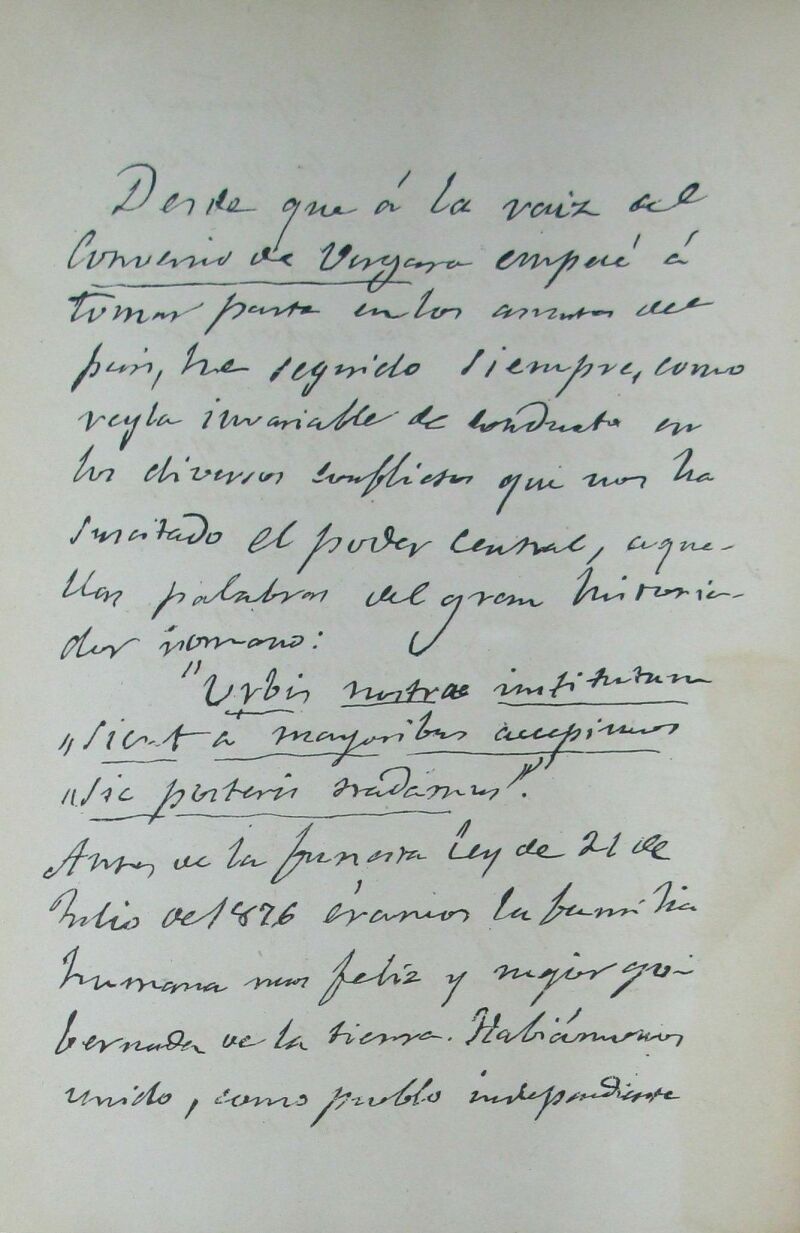 Desde que á la raiz del
Convenio de Vergara empecé á
tomar parte en los asuntos del
pais, he seguido siempre, como
regla invariable de conducta en
los diversos conflictos que nos ha
suscitado el poder central, aque-
llas palabras del gran historia-
dor romano:
"Urbis nostrae institutum
„Sicut á mayoribus accepimus
„Sic posteris tradamus".
Antes de la funesta Ley de 21 de
Julio de 1876 éramos la familia
humana mas feliz y mejor go-
bernada de la tierra. Habiámonos
unido, como pueblo independiente